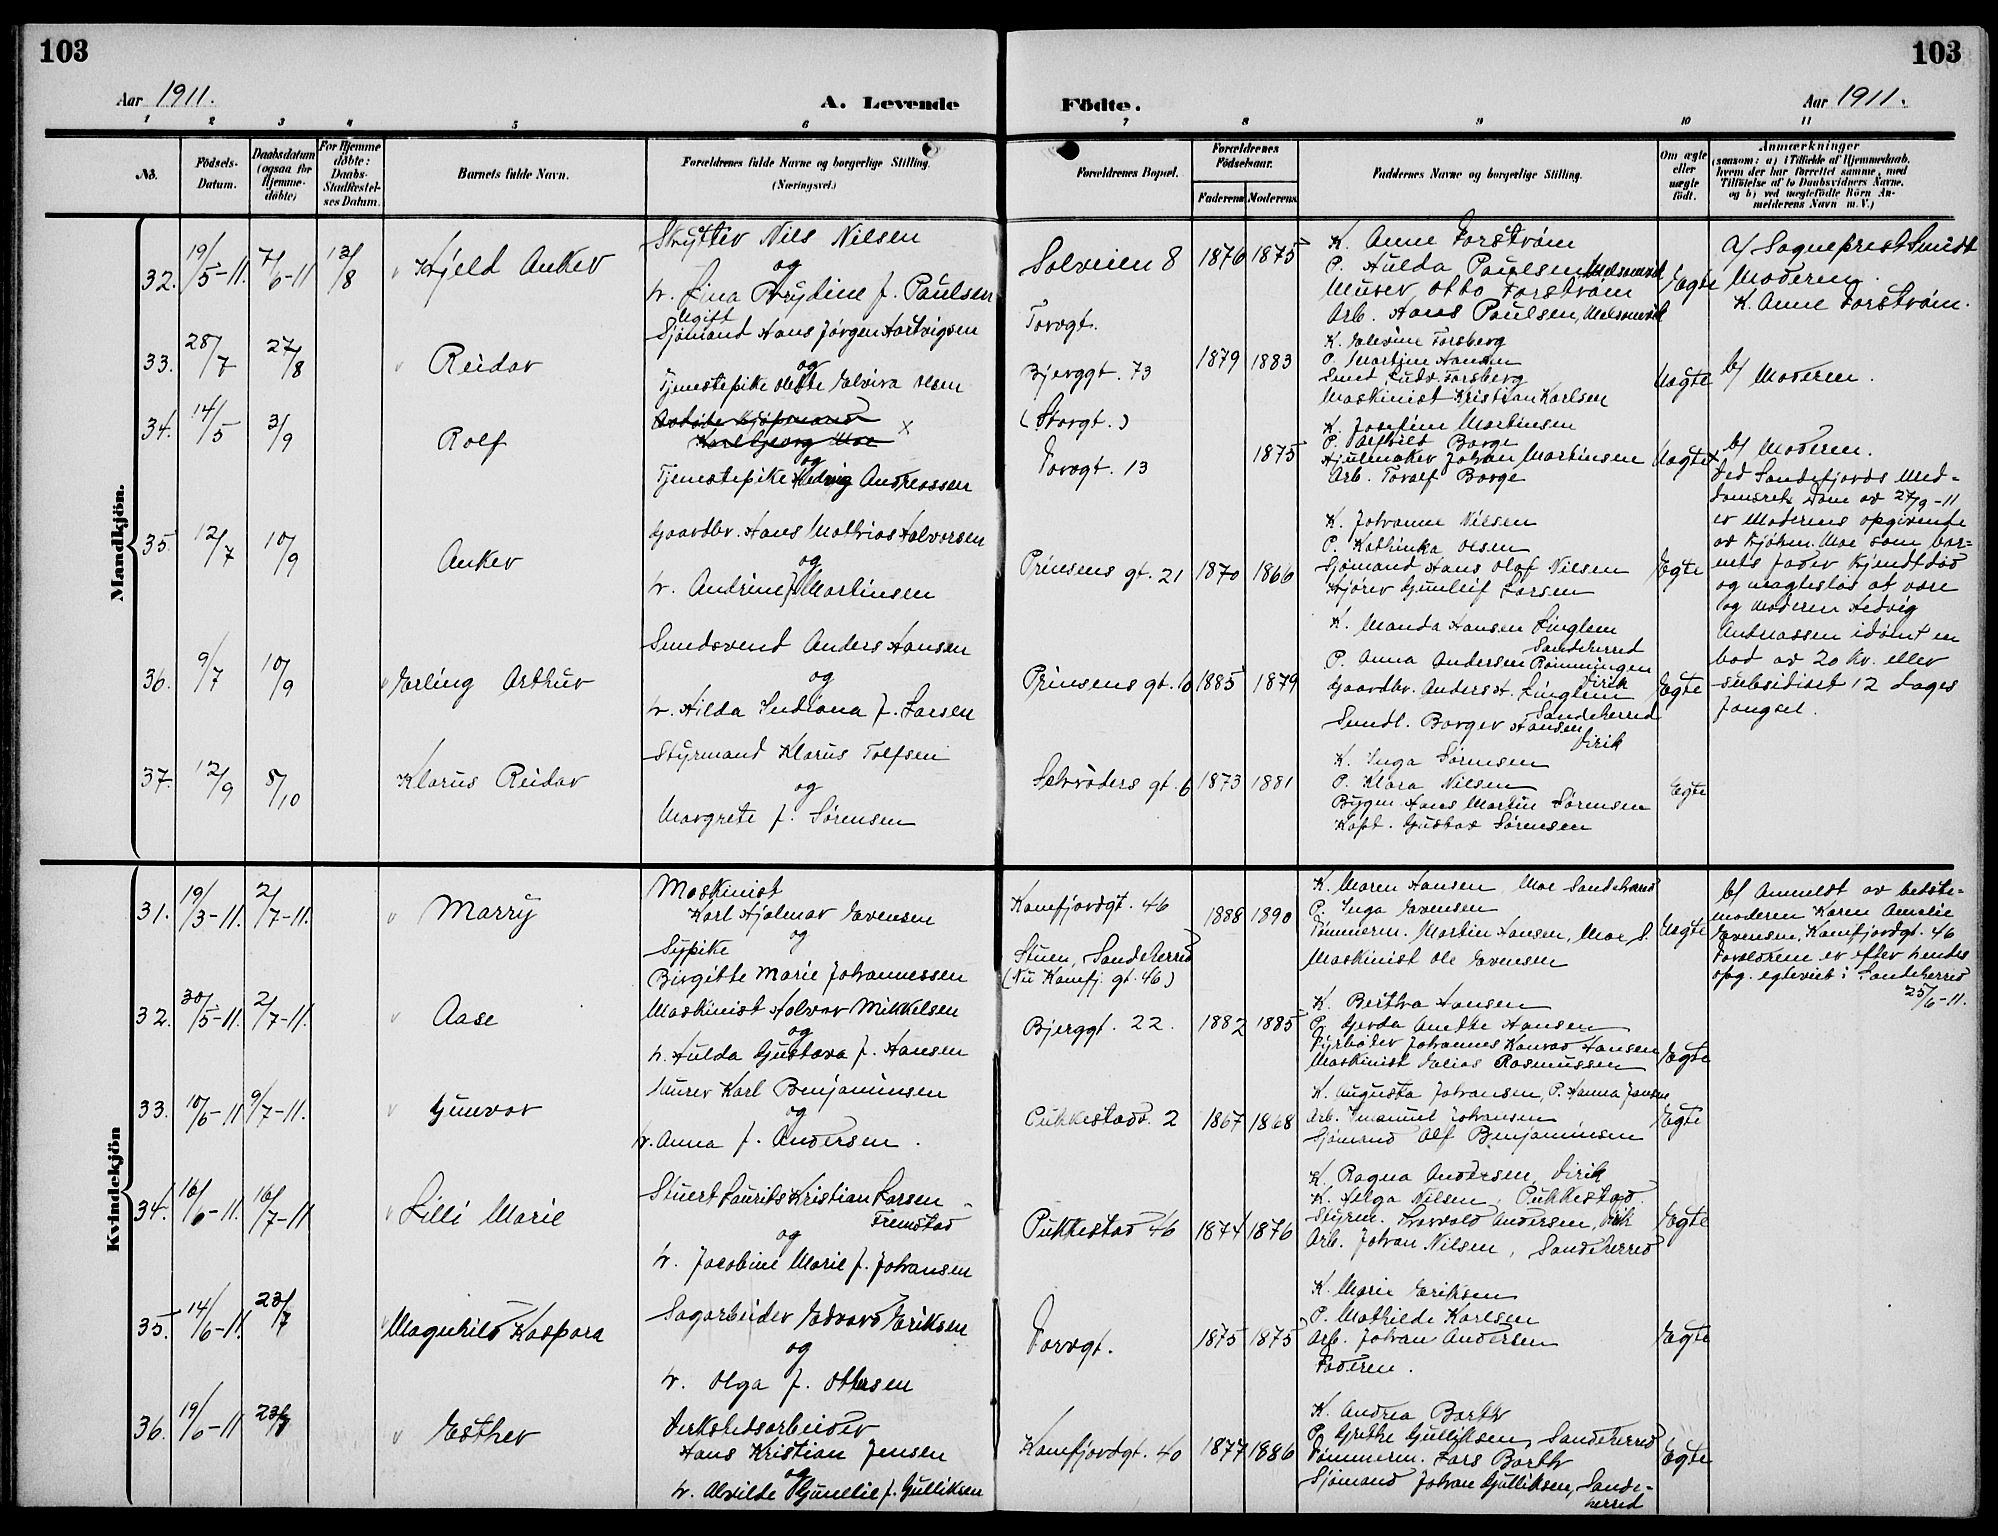 103
103
Aar 1911.
A. Levende Födte.
Aar 1911.
1 2 3 4 5 6 7 8 9 10 11
No.
Födsels-Datum.
Daabsdatum (ogsaa for Hjemme-döbte)
For Hjemme döbte: Daabs-Stadfæstel-ses Datum.
Barnets fulde Navn.
Forældrenes fulde Navne og borgerlige Stilling. (Næringsvei.)
Forældrenes Bopæl.
Forældrenes Födselsaar.
Faderens Moderens
Faddernes Navne og borgerlige Stilling.
Om ægte eller uægte födt.
Anmærkninger
(saasom: a) i Tilfælde af Hjemmedaab, hvem der har forrettet samme, med Tilföielse af to Daabsvidners Navne, og b) ved uægtefödte Börn An-melderens Navn m. V.)
Mandkjön.
32. 19/5-11. 7/6-11 13/8 Kjeld Anker
Skytter Nils Nilsen
og
h. Lina Brydine f. Paulsen
Solveien 8 1876 1875
K. Anne Forstrøm
P. Hulda Paulsen, Melsomvik
Murer Otto Forstrøm
Arb. Hans Paulsen, Melsomvik
Egte
a/ Sogneprest Smidt
Moderen.
K. Anne Forstrøm.
33. 28/7 27/8 Reidar
Ugift
Sjømand Hans Jørgen Hartvigsen
og
Tjenestepike Olette Elvira Olsen
Torvgt.
Bjerggt. 73
1879 1883
K. Elevine Forsberg
P. Martine Hansen
Smed Ludv. Forsberg
Maskinist Kristian Karlsen
Uegte
b/ Moderen.
34. 14/5 3/9 Rolf
Avdøde Kjøpmand
Karl Georg Moe x
og
Tjenestepike Hedvig Andreassen
(Storgt.)
Torvgt. 13
1875
K. Josefine Martinsen
P. Alfhild Borge
Hjulmaker Johan Martinsen
Arb. Toralf Borge
Uegte
b/ Moderen.
Ved Sandefjords Med-
domsrets Dom av 27/9-11
er Moderens opgivende
av Kjøbm. Moe som bar-
nets fader kjendt død
og magtesløs at være
og Moderen Hedvig
Andreassen idømt en
bod av 20 Kr. eller
subsidiært 12 dages
fængsel.
35. 12/7 10/9 Anker
Gaardbr. Hans Mathias Halvorsen
og
h. Andrine f. Martinsen
Prinsens gt. 21 1870 1866
K. Johanne Nilsen
P. Kathinka Olsen
Sjømand Hans Olaf Nilsen
Kjører Gunleif Larsen
Egte
36. 9/7 10/9 Erling Arthur
Smedsvend Anders Hansen
og
h. Hilda Indiana f. Larsen
Prinsens gt. 10 1885 1879
K. Manda Hansen Lingelem
Sandeherred
P. Anna Andersen Rømmingen
Virik
Gaardbr. Anders H. Lingelem
Sandeherred
Smedl. Borger Hansen
Virik
Egte
37. 12/9 8/10 Klarus Reidar
Styrmand Klarus Tolfsen
og
Margrete f. Sørensen
Schrøders gt. 6 1873 1881
K. Inga Sørensen
P. Klara Nilsen
Bygm. Hans Martin Sørensen
Kapt. Gustav Sørensen
Egte
Kvindekjön
31. 19/3-11. 2/7-11. Marry
Maskinist
Karl Hjalmar Evensen
og
Sypike
Birgitte Marie Johannessen
Kamfjordgt. 46
Stuen, Sandeherred
(Nu Kamfj. gt. 46)
1888 1890
K. Maren Hansen, Moe Sandeherred
P. Inga Evensen
Tømmerm. Martin Hansen, Moe S.
Maskinist Ole Evensen
Uegte
b/ Anmeldt av bedste-
moderen Karen Amalie
Evensen, Kamfjordgt. 46
Forældrene er efter hendes
opg. egteviet i Sandeherred
25/6-11.
32. 30/5-11. 2/7-11. Aase
Maskinist Halvor Mikkelsen
og
h. Hulda Gustava f. Hansen
Bjerggt. 22. 1882 1885
K. Bertha Hansen
P. Gerda Anette Hansen
Fyrbøder Johannes Konrad Hansen
Maskinist Elias Rasmussen
Egte
33. 10/6-11 9/7-11. Gunvor
Murer Karl Benjaminsen
og
h. Anna f. Andersen.
Pukkestadv. 2 1867 1868
K. Augusta Johansen, P. Hanna Jansen
Arb. Emanuel Johansen
Sjømand Alf Benjaminsen
Egte
34. 16/6-11. 16/7-11 Lilli Marie
Stuert Laurits Kristian Larsen
Fremstad
og
h. Jacobine Marie f. Johansen
Pukkestad 46 1874 1876
K. Ragna Andersen, Virik
K. Helga Nilsen, Pukkestad
Styrm. Thorvald Andersen, Virik
Arb. Johan Nilsen, Sandeherred
Egte
35. 14/6-11. 23/7 Magnhild Kaspara
Sagarbeider Edvard Eriksen
og
h. Olga f. Ottersen
Torvgt. 1875 1875
K. Marie Eriksen
P. Mathilde Karlsen
Arb. Johan Andersen
Faderen.
Egte
36. 19/6-11 23/7 Esther
Verkstedsarbeider
Hans Kristian Jensen
og
h. Alvilde Gunelie f. Gulliksen
Kamfjordgt. 40 1877 1886
K. Andrea Barth
P. Grethe Gulliksen, Sandeherred
Tømmerm. Lars Barth
Sjømand Johan Gulliksen, Sande-
herred
Egte